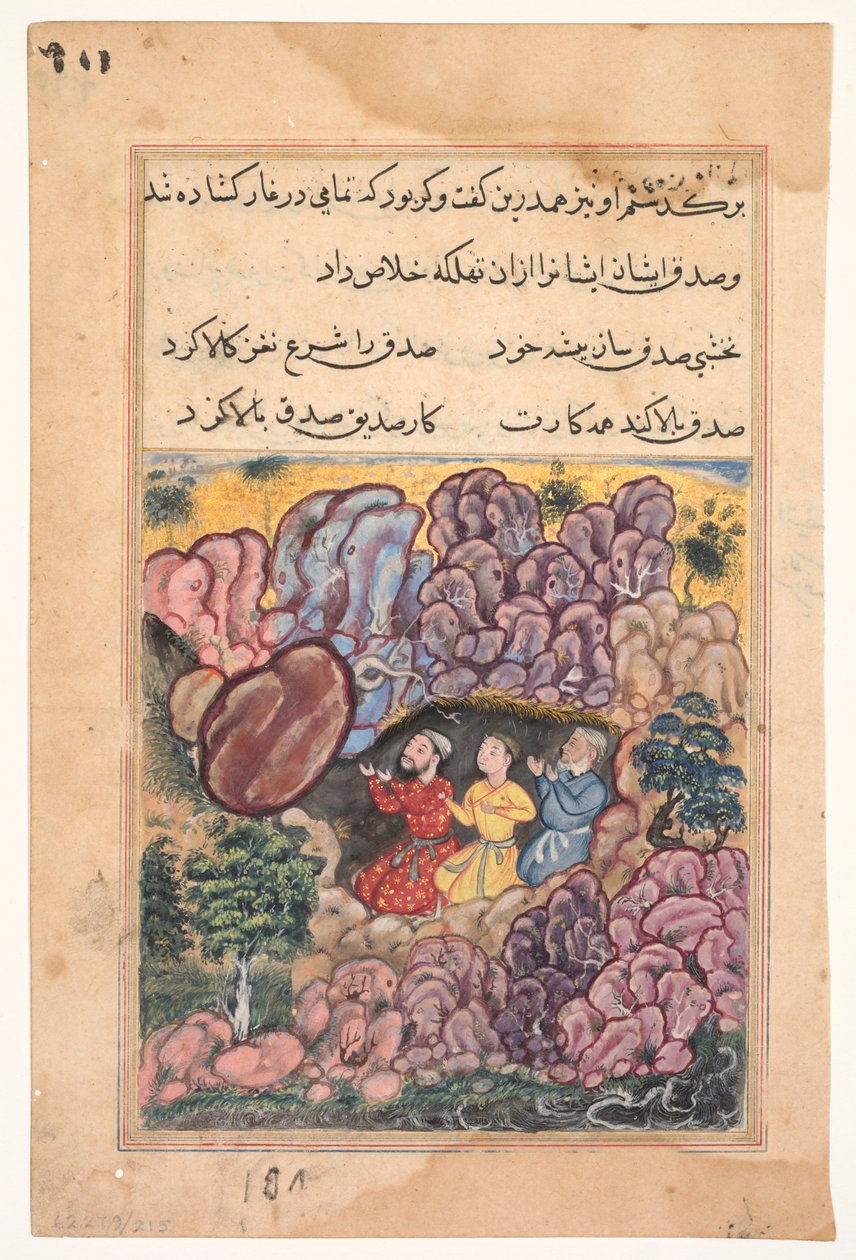 ۲۱۱
بر کد ششم او نیز همدرین کفت و کر بود که تمامی در غار کشاده شد
و صدق ایشان ایشانرا ازان تهلکه خلاص داد
نخشبی صدق ساز پیشه خود صدق را شرع نغز کالا کرد
صدق بالا کند همه کارت کار صدیق صدق بالا کرد
۱۵۱
62.279/215